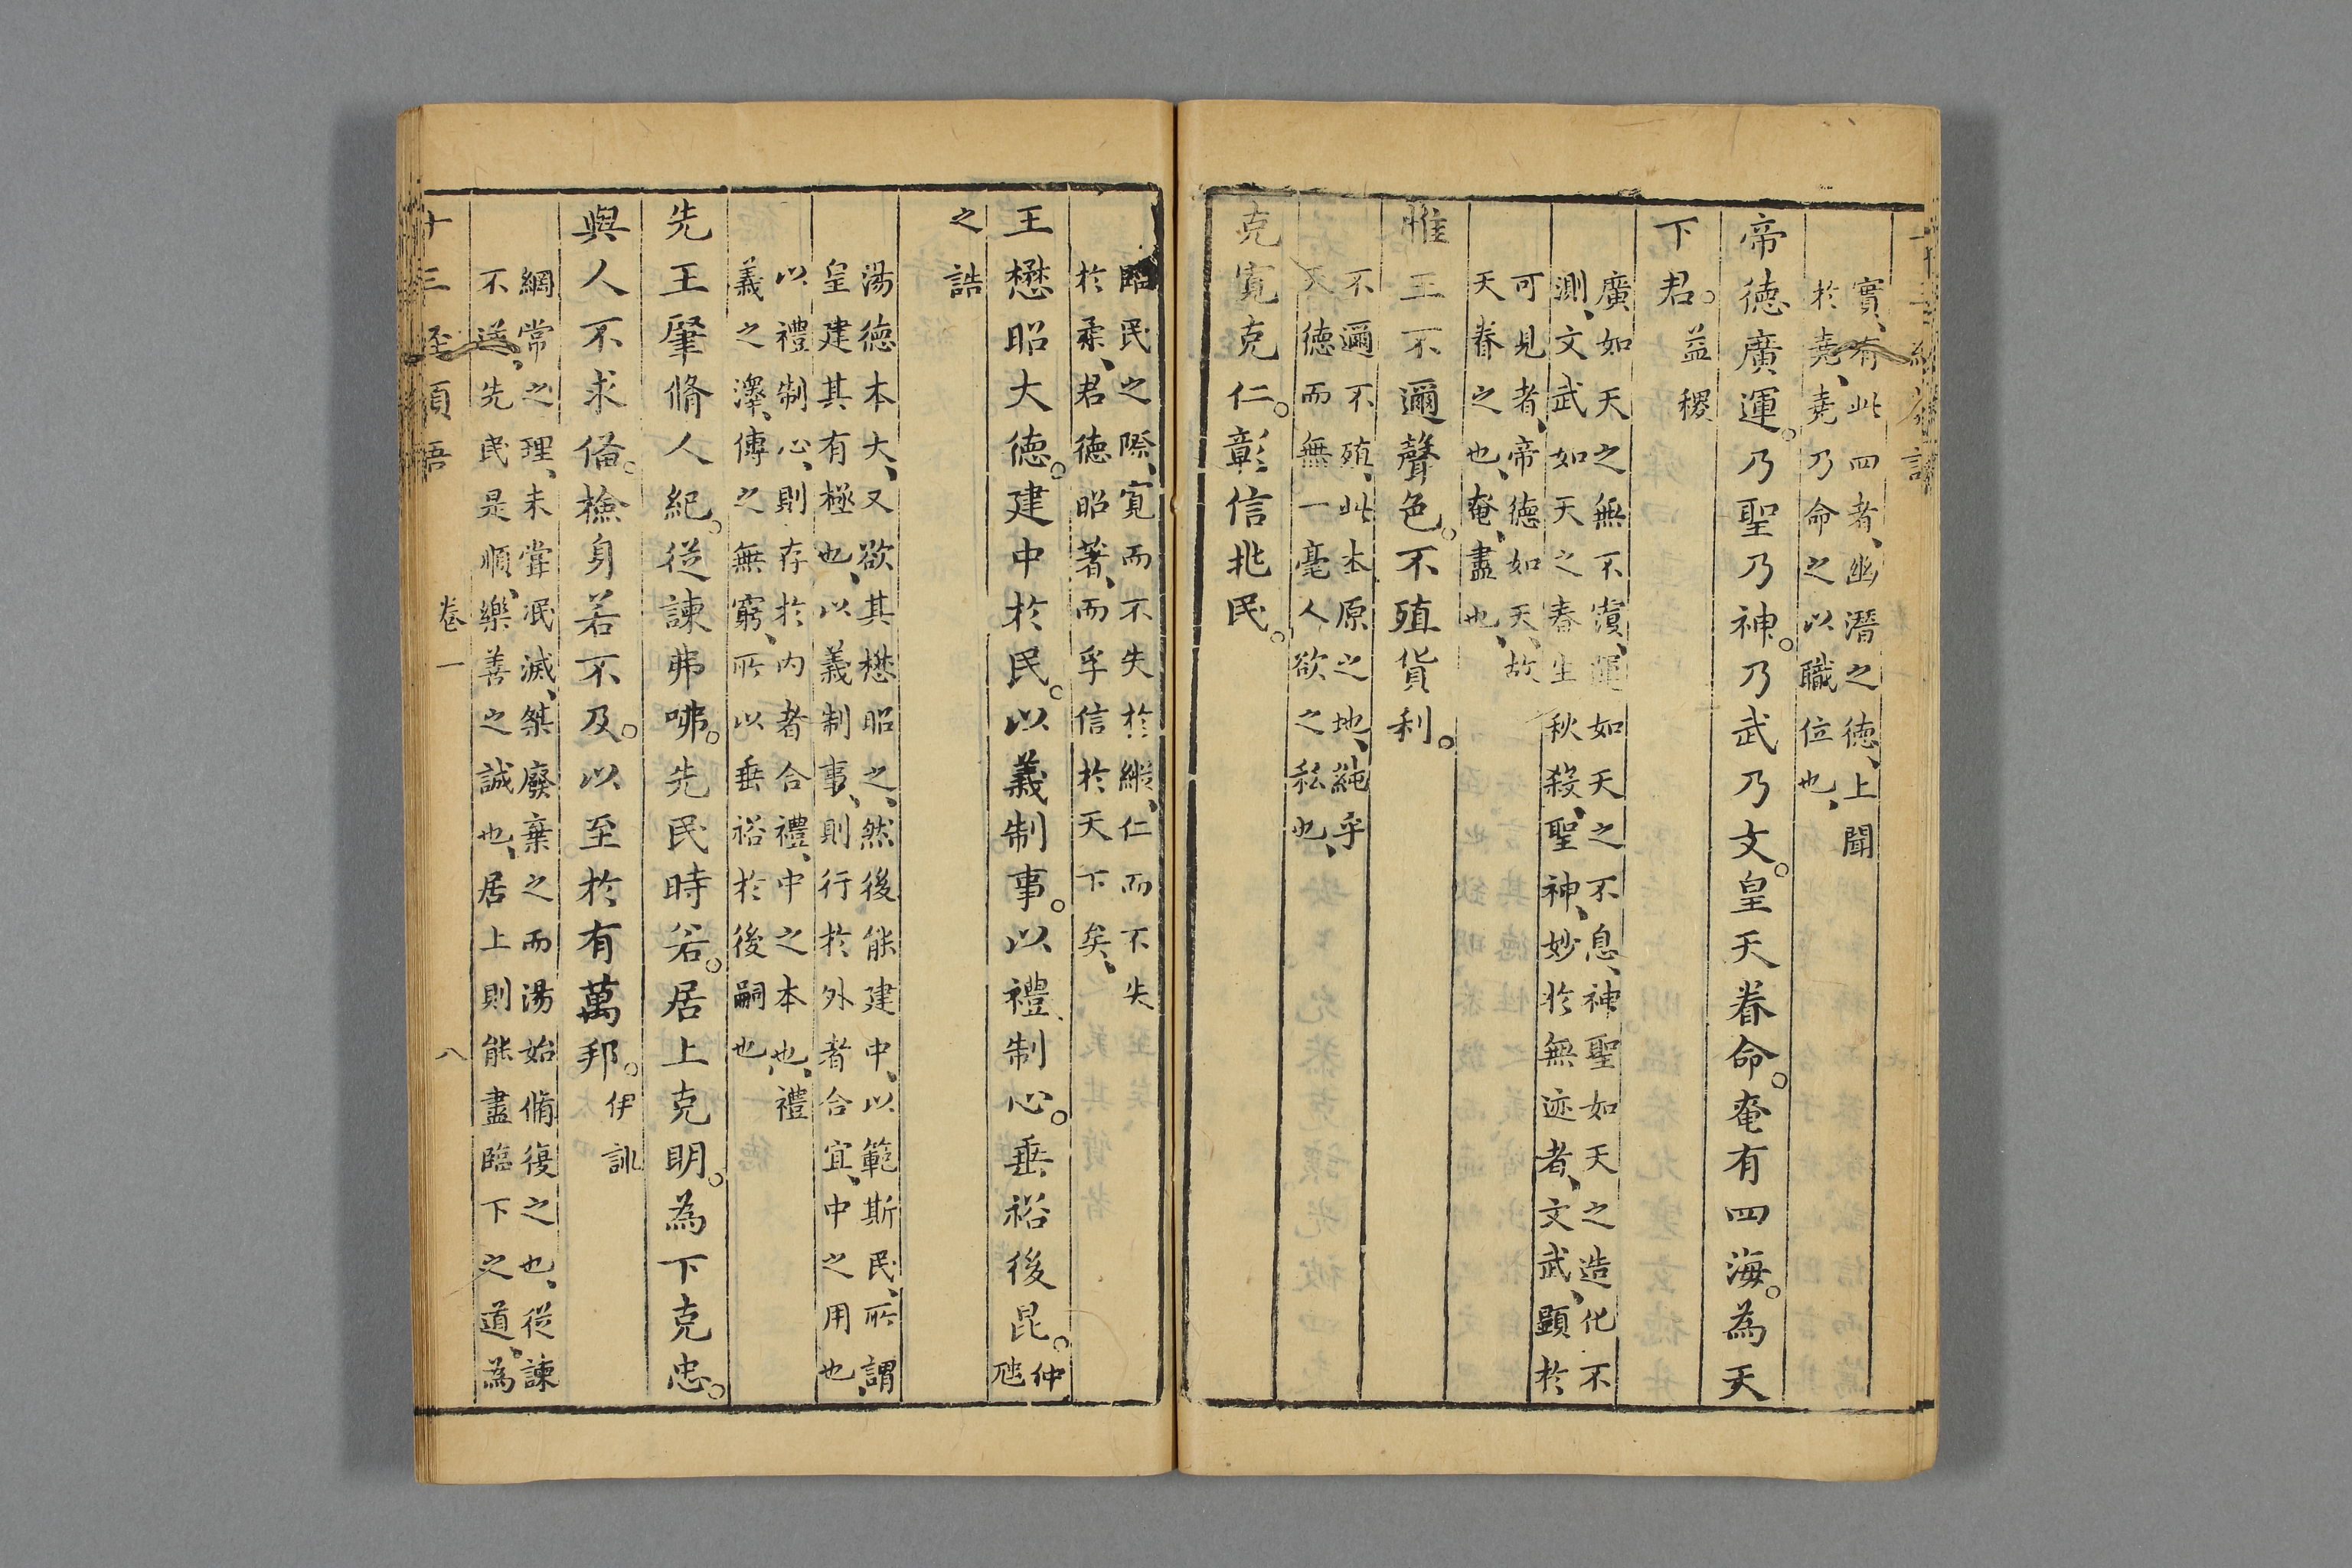 實、有此四者、幽潛之德、上聞
於堯、堯乃命之以職位也、
帝德廣運。乃聖乃神。乃武乃文。皇天眷命。奄有四海。為天
下君。益稷
廣如天之無不覆、運如天之不息、神聖如天之造化不
測、文武如天之春生秋殺、聖神、妙於無迹者、文武、顯於
可見者、帝德如天、故
天眷之也、奄、盡也、
惟王不邇聲色。不殖貨利。
不邇不殖、此本原之地、純乎
天德而無一毫人欲之私也、
克寬克仁。彰信兆民。
臨民之際、寬而不失於縱、仁而不失
於柔、君德昭著、而孚信於天下矣、
王懋昭大德。建中於民。以義制事。以禮制心。垂裕後昆。仲虺
之誥
湯德本大、又欲其懋昭之、然後能建中、以範斯民、所謂
皇建其有極也、以義制事、則行於外者合宜、中之用也、
以禮制心、則存於內者合禮、中之本也、禮
義之澤、傳之無窮、所以垂裕於後嗣也、
先王肇脩人紀。從諫弗咈。先民時若。居上克明。為下克忠。
與人不求偹。檢身若不及。以至於有萬邦。伊訓
綱常之理、未嘗泯滅、桀廢棄之而湯始脩復之也、從諫
不逆、先民是順、樂善之誠也、居上則能盡臨下之道、為
卷一 八